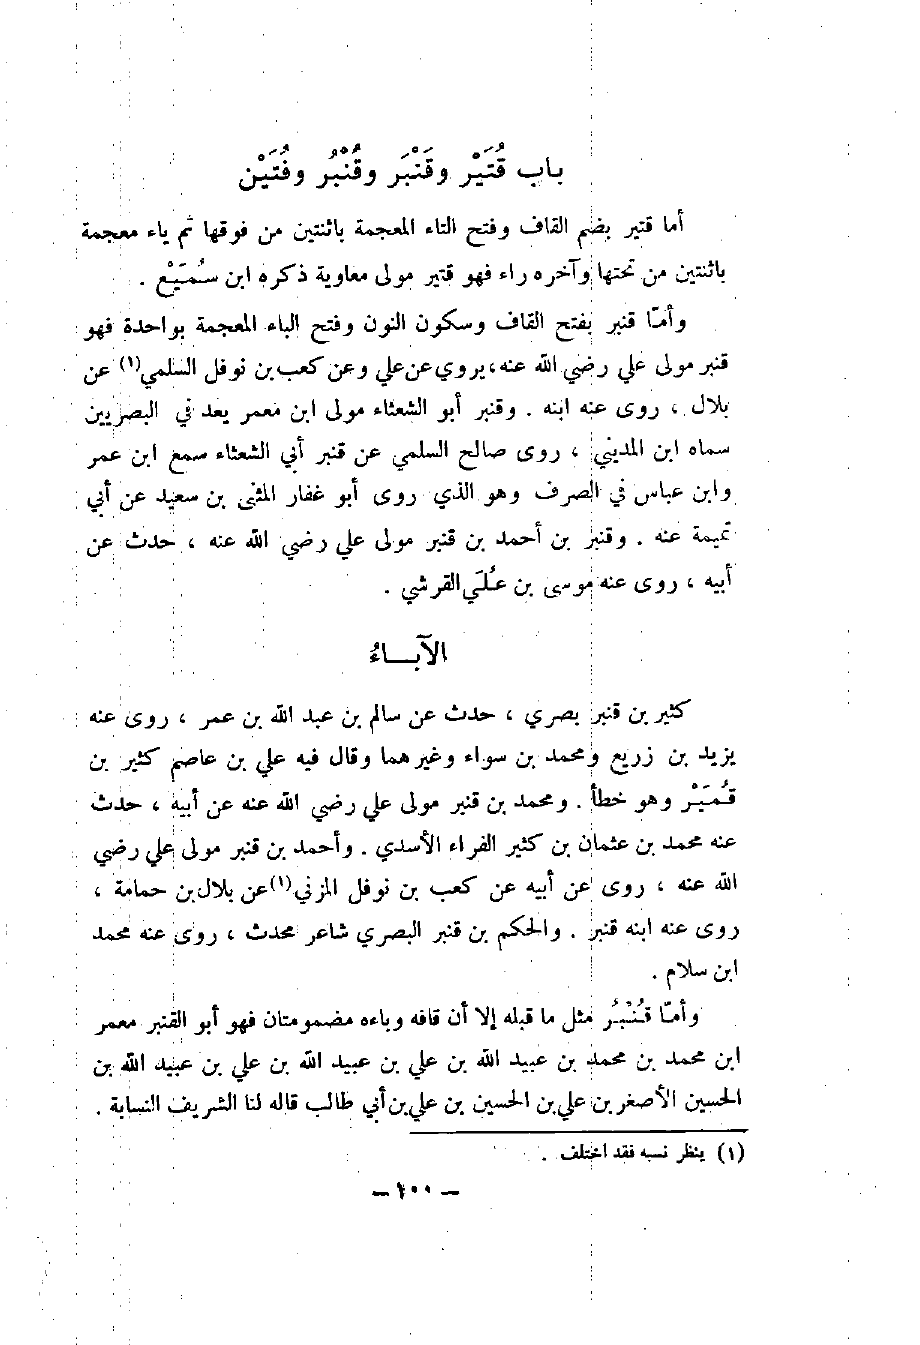 باب قُتَيْر وقَنْبَر وقُنْبُر وفُتَيْن
أما قتير بضم القاف وفتح التاء المعجمة باثنتين من فوقها ثم ياء معجمة
باثنتين من تحتها وآخره راء فهو قتير مولى معاوية ذكره ابن سُمَيْع .
وأمّا قنبر بفتح القاف وسكون النون وفتح الباء المعجمة بواحدة فهو
قنبر مولى علي رضي الله عنه، يروي عن علي وعن كعب بن نوفل السلمي(١) عن
بلال ، روى عنه ابنه . وقنبر أبو الشعثاء مولى ابن معمر يعد في البصريين
سماه ابن المديني ، روى صالح السلمي عن قنبر أبي الشعثاء سمع ابن عمر
وابن عباس في الصرف وهو الذي روى أبو غفار المثنى بن سعيد عن أبي
تميمة عنه . وقنبر بن أحمد بن قنبر مولى علي رضي الله عنه ، حدث عن
أبيه ، روى عنه موسى بن عُلَي القرشي .
الآبـــاءُ
كثير بن قنبر بصري ، حدث عن سالم بن عبد الله بن عمر ، روى عنه
يزيد بن زريع ومحمد بن سواء وغيرهما وقال فيه علي بن عاصم كثير بن
قُمَيْر وهو خطأ . ومحمد بن قنبر مولى علي رضي الله عنه عن أبيه ، حدث
عنه محمد بن عثمان بن كثير الفراء الأسدي . وأحمد بن قنبر مولى علي رضي
الله عنه ، روى عن أبيه عن كعب بن نوفل المزني(١) عن بلال بن حمامة ،
روى عنه ابنه قنبر . والحكم بن قنبر البصري شاعر محدث ، روى عنه محمد
ابن سلام .
وأمّا قُنْبُر مثل ما قبله إلا أن قافه وباءه مضمومتان فهو أبو القنبر معمر
ابن محمد بن محمد بن عبيد الله بن علي بن عبيد الله بن علي بن عبيد الله بن
الحسين الأصغر بن علي بن الحسين بن علي بن أبي طالب قاله لنا الشريف النسابة .
(١) ينظر نسبه فقد اختلف .
— ١٠٠ —